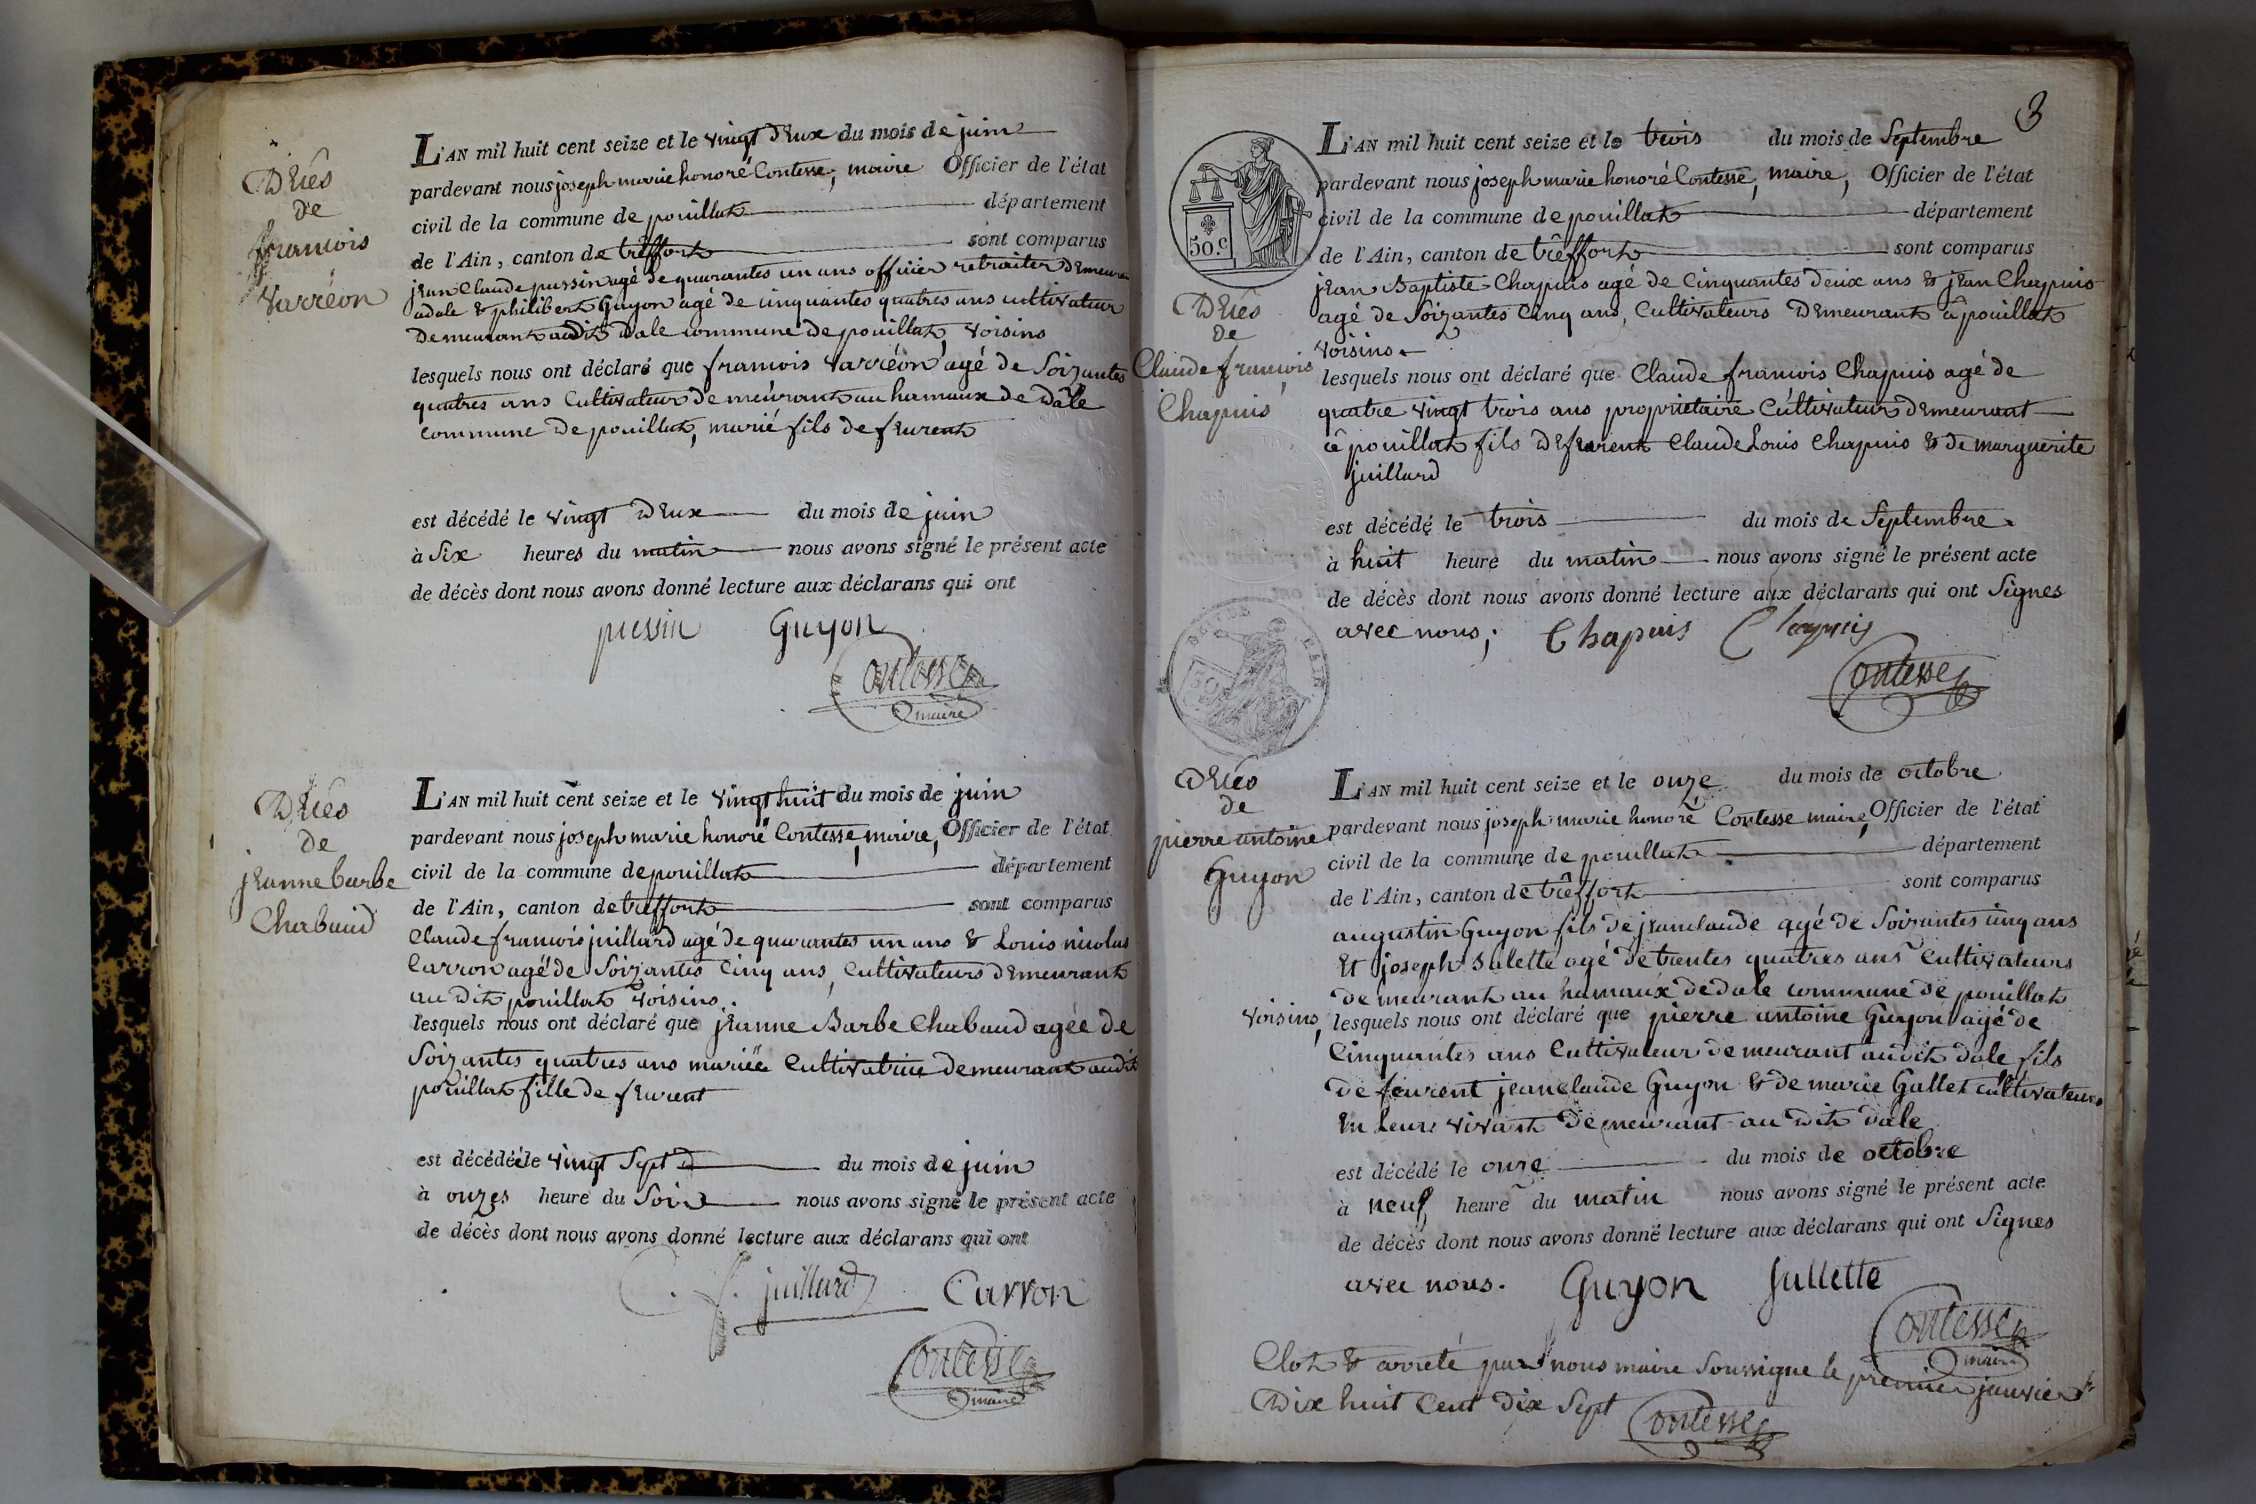 Décés
de
francois
Varréon
L'AN mil huit cent seize et le vingt deux du mois de juin
pardevant nous joseph marie honoré Contesse, maire Officier de l'état
civil de la commune de pouillat département
de l'Ain, canton de trêffort sont comparus
jean Claude pussin agé de quarantes un ans officier retraiter demeurant
adale & philibert Guyon agé de cinquantes quatres ans cultivateur
demeurant audit dale commune de pouillat, voisins
lesquels nous ont déclaré que francois varréon agé de Soixantes
quatres ans Cultivateur demeurant au hamaux de Dâle
commune de pouillat, marié fils de feurent
est décédé le vingt deux du mois de juin
à Six heures du matin nous avons signé le présent acte
de décès dont nous avons donné lecture aux déclarans qui ont
pussin Guyon
Contesse
maire
Décés
de
jeanne barbe
Chabaud
L'AN mil huit cent seize et le vingt huit du mois de juin
pardevant nous joseph marie honoré Contesse, maire, Officier de l'état
civil de la commune de pouillat département
de l'Ain, canton de treffort sont comparus
Claude francois juillard agé de quarantes un ans & Louis nicolas
Carron agé de Soixantes Cinq ans, Cultivateurs demeurant
au dit pouillat voisins.
lesquels nous ont déclaré que jeanne Barbe Chabaud agée de
Soixantes quatres ans mariée Cultivatrice demeurant audit
pouillat fille de feurent
est décédée le vingt Sept du mois de juin
à onzes heure du Soir nous avons signé le présent acte
de décès dont nous avons donné lecture aux déclarans qui ont
C. f. juillard Carron
Contesse
maire
3
50 c
Décés
de
Claude francois
Chapuis
L'AN mil huit cent seize et le trois du mois de Septembre
pardevant nous joseph marie honoré Contesse, maire, Officier de l'état
civil de la commune de pouillat département
de l'Ain, canton de trêffort sont comparus
jean Baptiste Chapuis agé de Cinquantes deux ans & jean Chapuis
agé de Soixantes Cinq ans, Cultivateurs Demeurant â pouillat
voisins
lesquels nous ont déclaré que Claude francois Chapuis agé de
quatre vingt trois ans proprietaire Cultivateur demeurant
â pouillat fils de feurent Claude Louis Chapuis & de marguerite
juillard
est décédé le trois du mois de Septembre
à huit heure du matin nous avons signé le présent acte
de décès dont nous avons donné lecture aux déclarans qui ont Signes
avec nous; Chapuis Chapuis
Contesse
Décés
de
pierre antoine
Guyon
L'AN mil huit cent seize et le onze du mois de octobre
pardevant nous joseph marie honoré Contesse maire, Officier de l'état
civil de la commune de pouillat département
de l'Ain, canton de trêffort sont comparus
augustin Guyon fils de jean claude agé de Soixantes cinq ans
et joseph Sallette agé de trentes quatres ans Cultivateurs
demeurant au hamaux de dale commune de pouillat
voisins, lesquels nous ont déclaré que pierre antoine Guyon agé de
Cinquantes ans Cultivateur demeurant audit dale fils
de feurent jean claude Guyon & de marie Gallet cultivateurs
en leur vivant demeurant au dit dale
est décédé le onze du mois de octobre
à neuf heure du matin nous avons signé le présent acte
de décès dont nous avons donné lecture aux déclarans qui ont Signes
avec nous. Guyon Sallette
Contesse
maire
Clot & arreté par nous maire Soussigne le premier janvier
Dix huit Cent Dix Sept Contesse